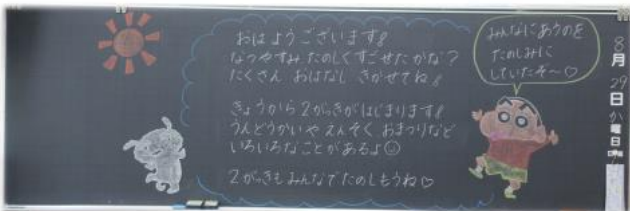 おはようございます!!
なつやすみ たのしくすごせたかな?
たくさん おはなし きかせてね!!
きょうから2がっきがはじまります!!
うんどうかいや えんそく おまつりなど
いろいろなことがあるよ☺
2がっきもみんなでたのしもうね♡
みんなにあうのを
たのしみに
していたぞ〜♡
8月29日か曜日